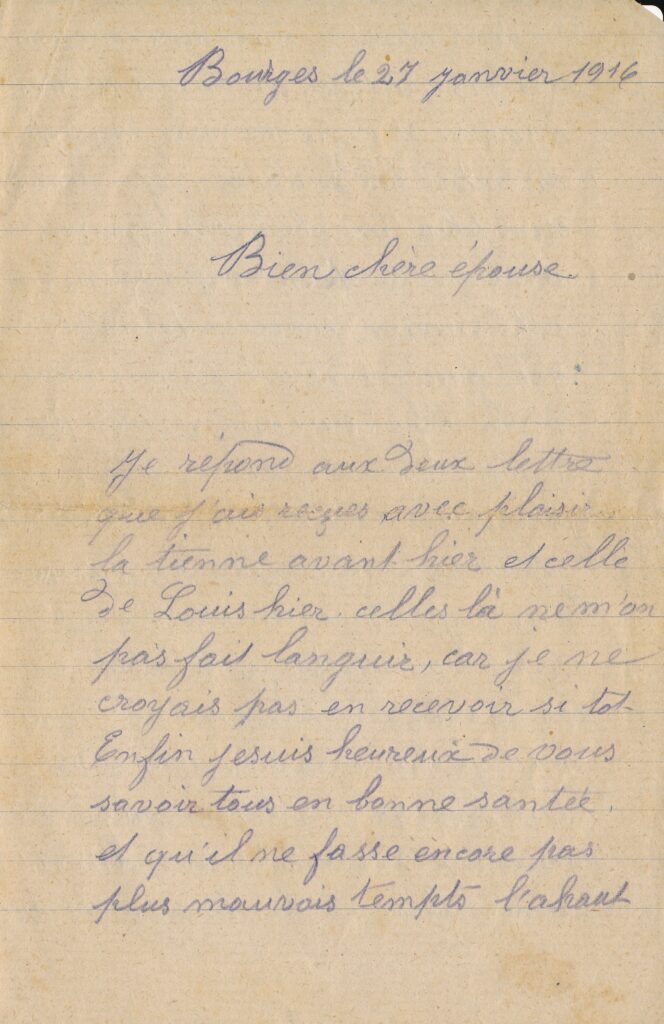 Bourges le 27 janvier 1916
Bien chère épouse.
Je répond aux deux lettre
que j'ais reçues avec plaisir
la tienne avant hier et celle
de Louis hier. celles là ne m'on
pas fait languir, car je ne
croyais pas en recevoir si tot
Enfin je suis heureux de vous
savoir tous en bonne santée.
et qu'il ne fasse encore pas
plus mauvais tempts l'ahaut